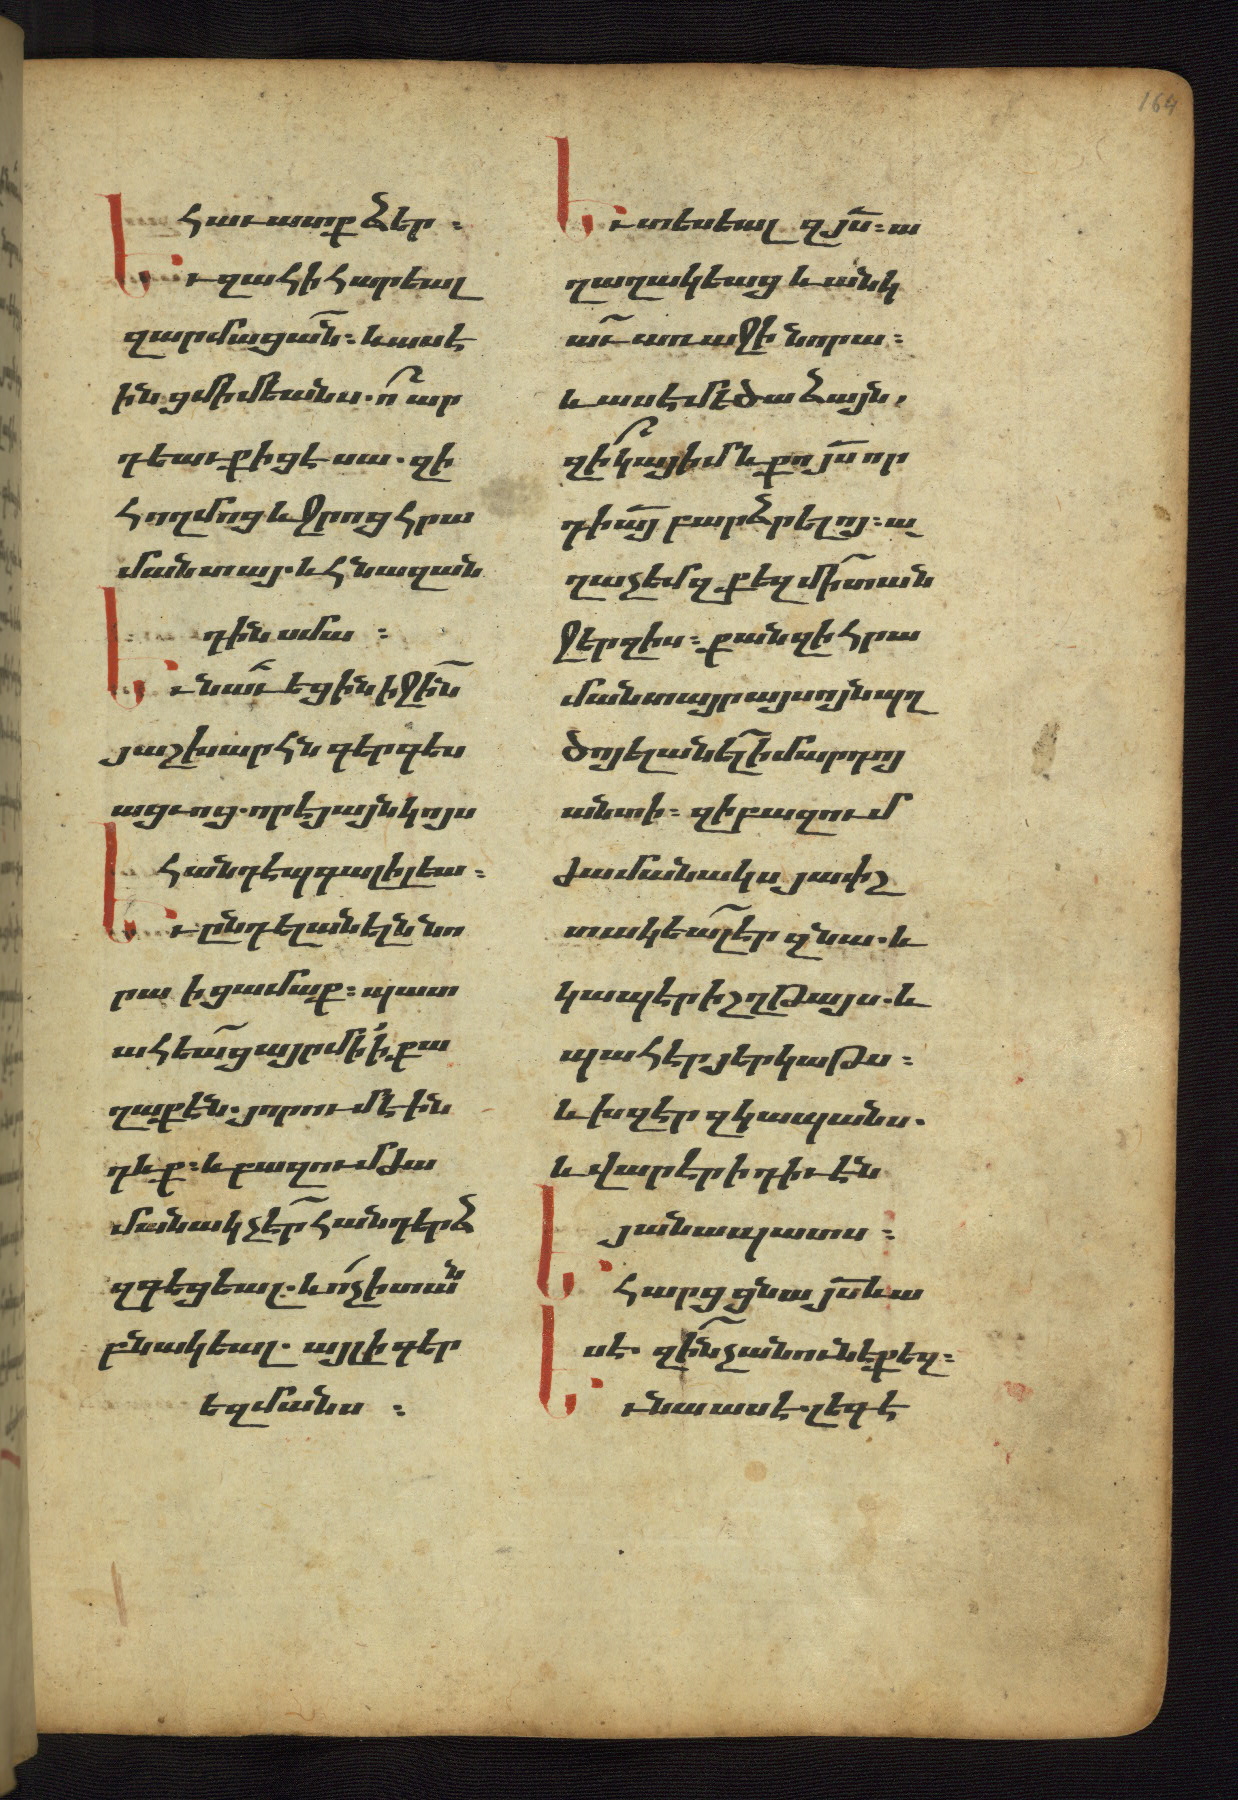 164
հաւատք ձեր։
Եւ զահի հարեալ
զարմացան̃։ և ասէ
ին ցմիմեանս. ո՞ ար
դեաւք իցէ սա. զի
հողմոց և ջրոց հրա
ման տայ. և հնազան
դին սմա։
Եւ նաւ՛եցին իջին̃
յաշխարհն գերգես
ացւոց. որ է յայնկոյս
հանդէպ գալիլեա։
Եւ ընդ ելանելն նո
րա ի ցամաք։ պատ
ահեա̃ց այր մի՛ ի քա
ղաքէն. յորում էին
դևք։ և բազում ժա
մանակ չէր՛ հանդերձ
զգեցեալ. և ո՛չ ի տան̃
բնակեալ. այլ ի գեր
եզմանս։
Եւ տեսեալ զյս̃։ ա
ղաղակեաց և անկ
աւ̃ առաջի նորա։
և ասէ մեծաձայն,
զի՞ կայ իմ և քո յս̃ որ
դի ա̃յ բարձրելոյ։ ա
ղաչեմ զքեզ մի՛ տան
ջեր զիս։ քանզի հրա
ման տայր այսոյն պղ
ծոյ ելանել̃ ի մարդոյ
անտի։ զի բազում
ժամանակս յափշ
տակեալ̃ էր զնա. և
կապէր ի շղթայս. և
պահէր յերկաթս։
և խզէր զկապանս.
և վարէր ի դիւէն
յանապատս։
Եհարց ցնա յս̃ և ա
սէ. զի՞նչ անուն է քեզ։
Եւ նա ասէ. լեգէ